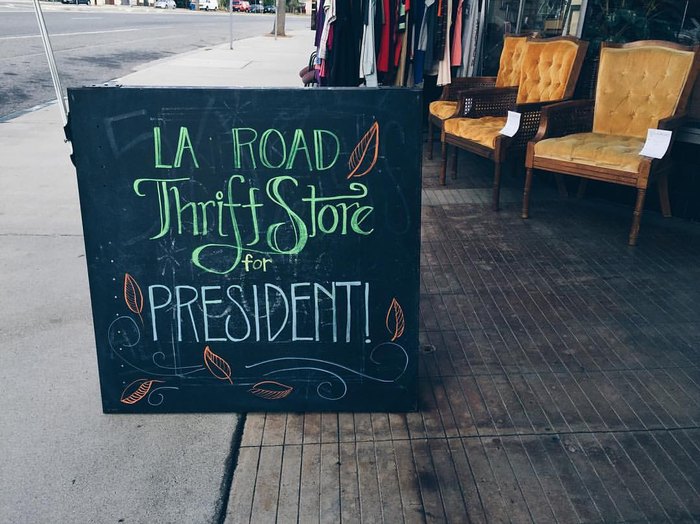 LA ROAD
Thrift Store
for
PRESIDENT!